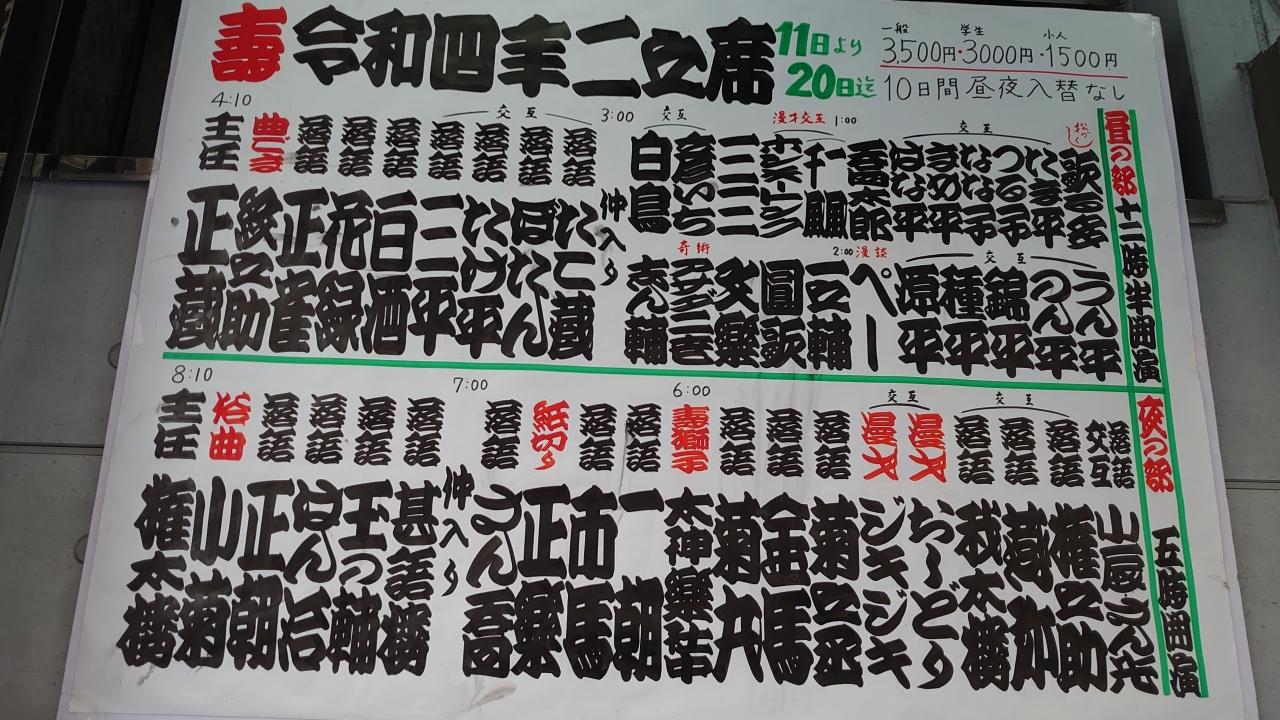 壽 令和四年二之席
11日より
20日迄
一般 学生 小人
3,500円・3000円・1500円
10日間昼夜入替なし
昼の部 十二時半開演
交互
たき平
つる子
なな子
きめ平
はな平
吾太郎
漫才交互 1:00
千風
交互
三三
彦いち
白鳥
交互
うん平
つん平
錦平
種平
原平
2:00 漫談
ペー
圓歌
文樂
奇術
志ん輔
3:00
仲入り
交互
落語 たこ蔵
落語 ぼたん
落語 たけ平
落語 三平
落語 白酒
落語 花緑
落語 正雀
曲ごま 紋之助
4:10
主任 正蔵
夜の部 五時開演
落語交互 小辰 さん光
交互
落語 権之助
落語
落語 我太楼
交互
漫才 おしどり
漫才 ジキジキ
落語 菊之丞
落語 金馬
落語 菊丸
6:00
壽獅子 太神樂社中
落語 一朝
落語 市馬
紙切り 正樂
落語 さん喬
7:00
仲入り
落語 甚語楼
落語 玉の輔
落語 はん治
落語 正朝
俗曲 小菊
8:10
主任 権太楼